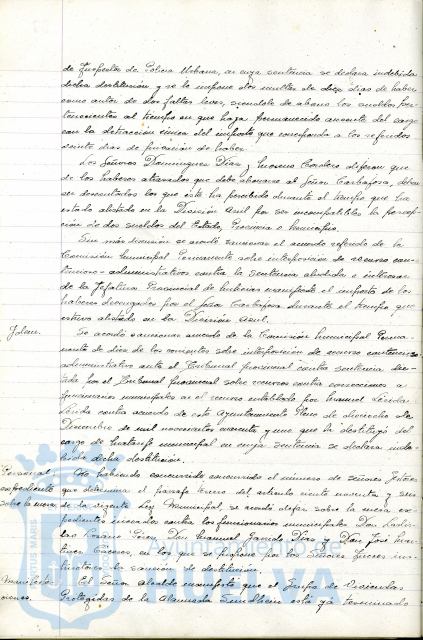 de Inspector de Policia Urbana, en cuya sentencia se declara indebida
dicha destitución y se le impone dos multas de diez dias de haber
como autor de dos faltas leves, siendole de abono los sueldos per-
tenecientes al tiempo en que haya permanecido ausente del cargo
con la detracción única del importe que corresponda a los referidos
veinte dias de privación de haber.
Los Señores Dominguez Diaz y Moreno Cordero dijeron que
de los haberes atrasados que debe abonarse al Señor Carbajosa, deben
ser descontados los que este ha percibido durante el tiempo que ha
estado alistado en la División Azul por ser incompatibles la percep-
ción de dos sueldos del Estado, Provincia o Municipio.
Sin más discusión se acordó sancionar el acuerdo referido de la
Comisión Municipal Permanente sobre interposición de recurso con-
tencioso-administrativo contra la sentencia aludida e interesar
de la Jefatura Provincial de Milicias manifieste el importe de los
haberes devengados por el Señor Carbajosa durante el tiempo que
estuvo alistado en la División Azul.
Idem.
Se acordó sancionar acuerdo de la Comisión Municipal Perma-
nente de diez de los corrientes sobre interposición de recurso contencioso
administrativo ante el Tribunal provincial contra sentencia dic-
tada por el Tribunal provincial sobre recursos contra correcciones a
funcionarios municipales en el recurso entablado por Manuel
contra acuerdo de este Ayuntamiento Pleno de dieciocho de
Diciembre de mil novecientos cuarenta y uno que lo destituyó del
cargo de municipal en cuya sentencia se declara inde-
bida dicha destitución.
Personal,
expediente
sobre la mesa
No habiendo concurrido concurrido el número de Señores Gestores
que determina el párrafo tercero del articulo ciento noventa y seis
de la vigente Ley Municipal, se acordó dejar sobre la mesa ex-
pedientes incoados contra los funcionarios municipales Don Ladis-
lao Lozano Perez, Don Manuel Garrido Diaz y Don José Mar-
tinez Caceres, en los que se propone por los Señores Jueces ins-
tructores la sanción de destitución.
Manifesta-
ciones.
El Señor Alcalde manifestó que el Grupo de Viviendas
Protegidas de la Alameda Sundheim está ya terminado